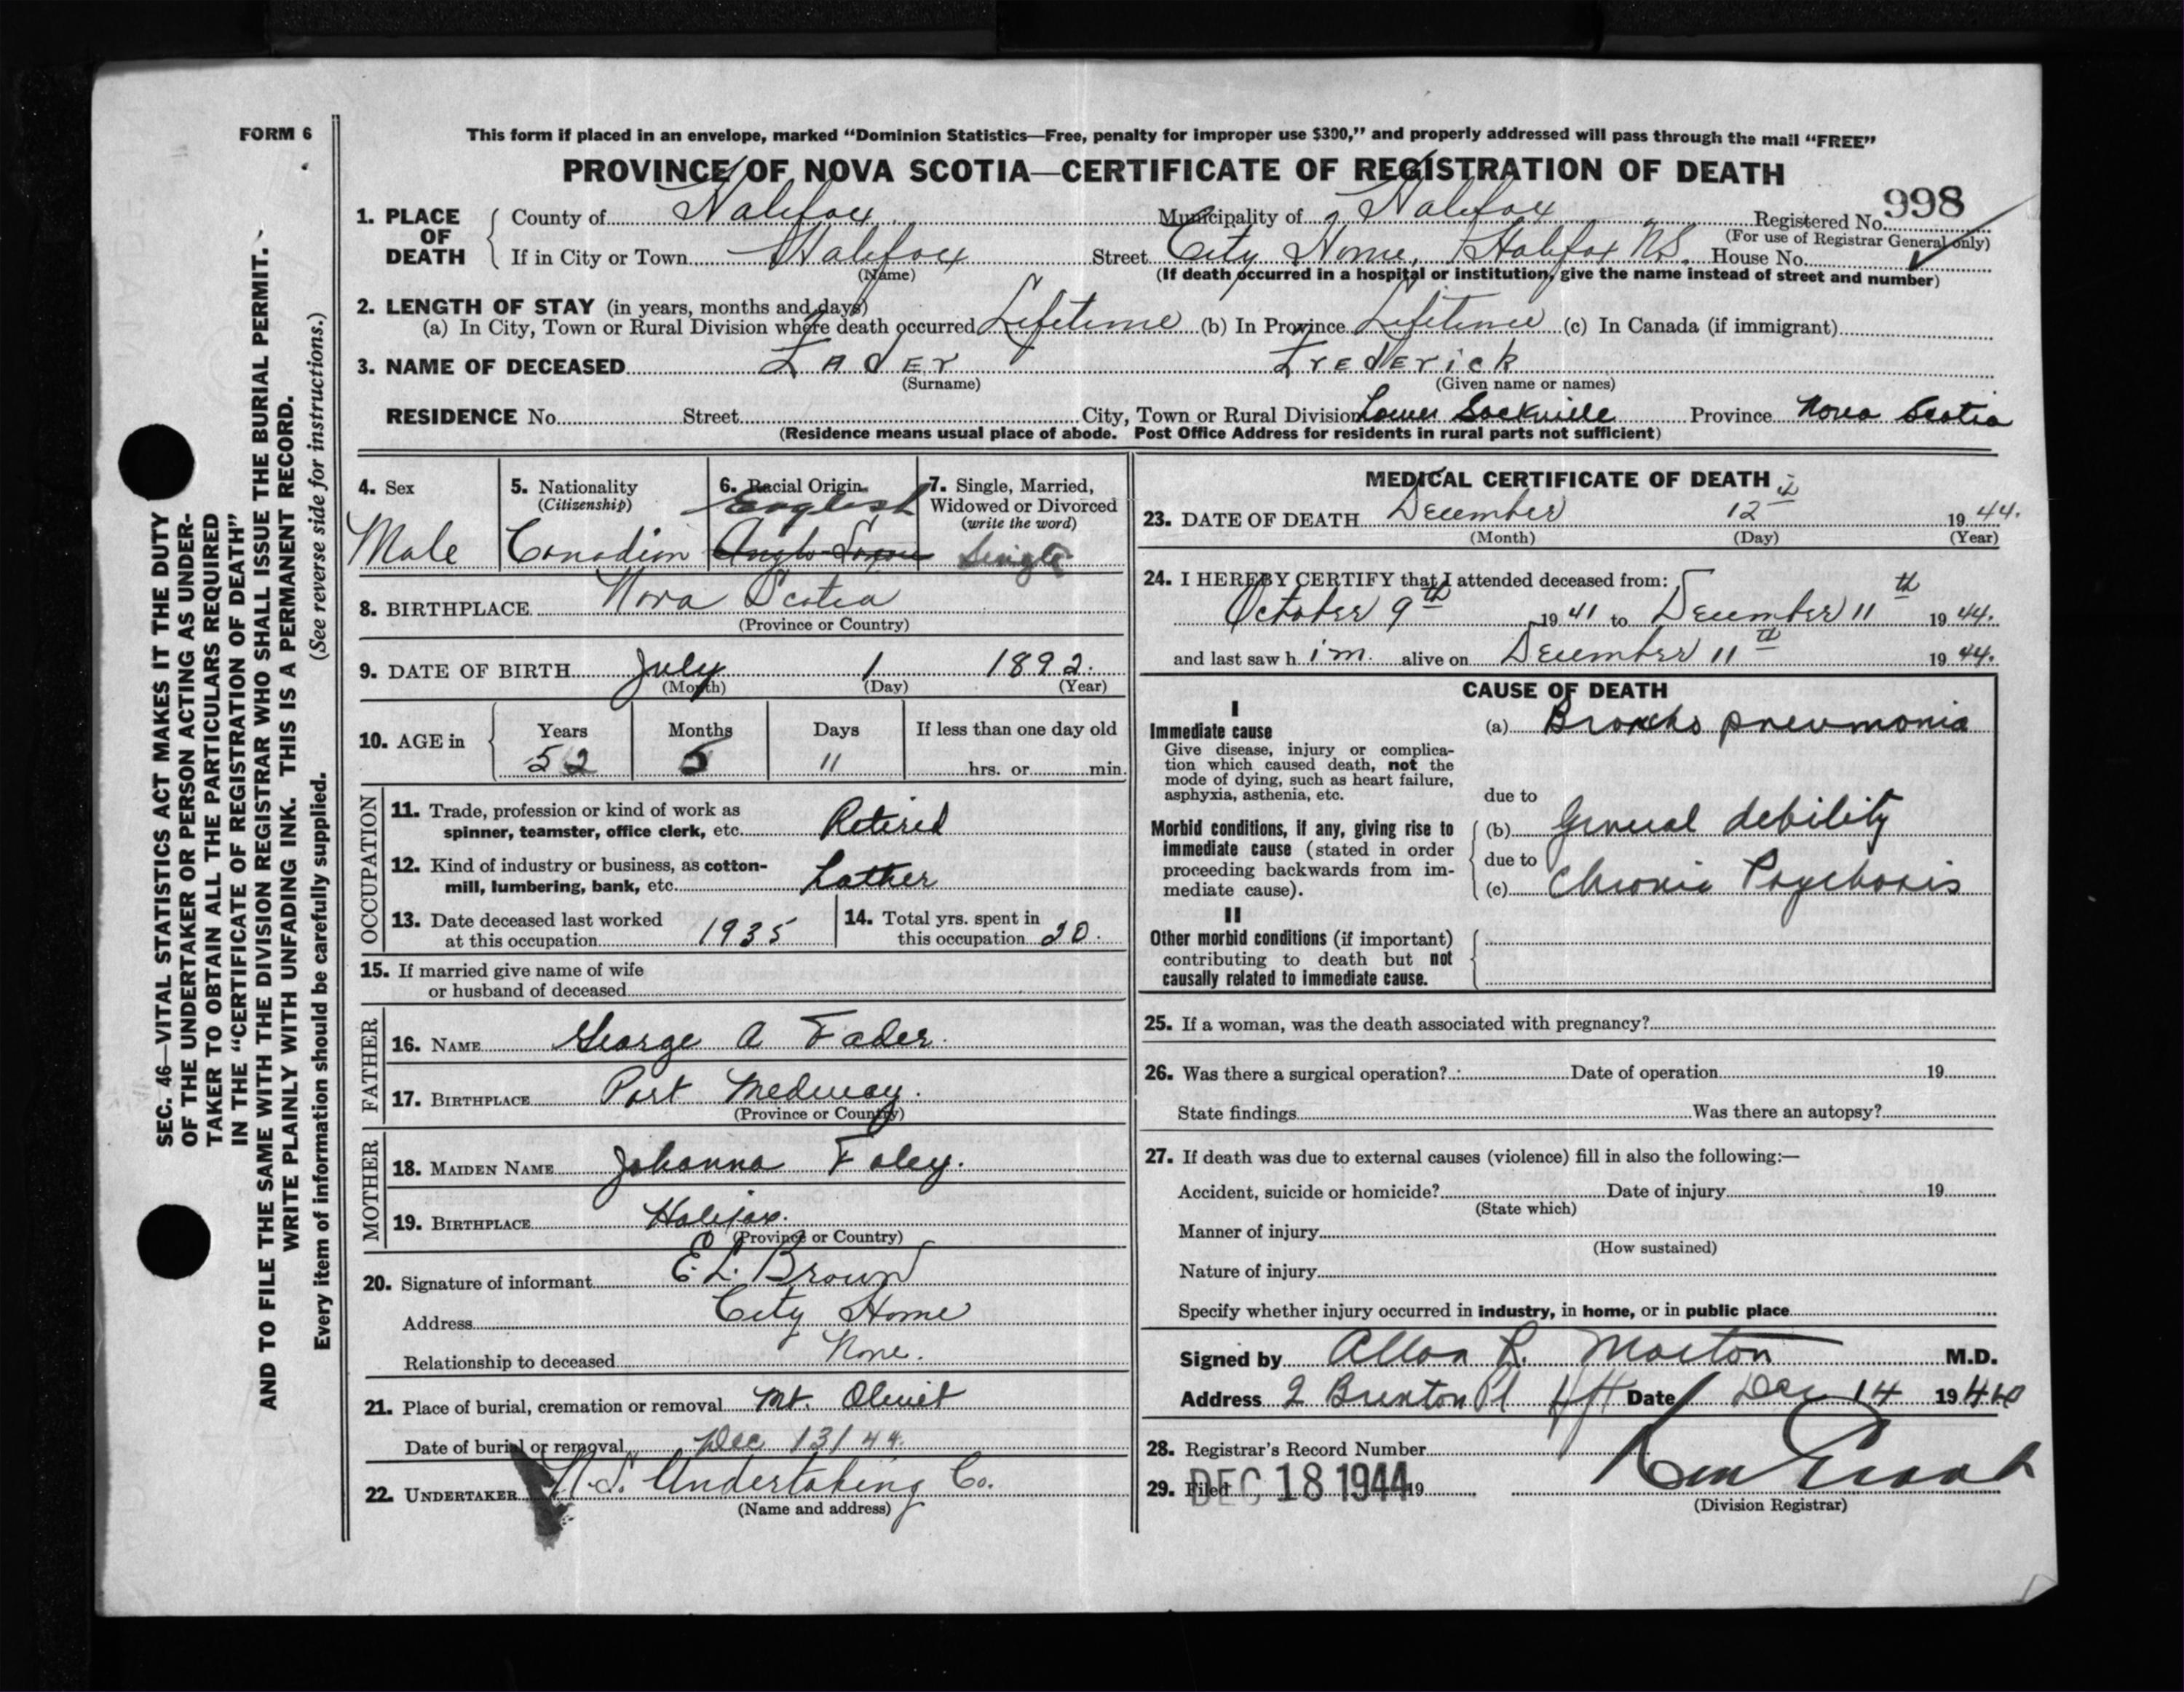 FORM 6
This form if placed in an envelope, marked "Dominion Statistics—Free, penalty for improper use $300," and properly addressed will pass through the mail "FREE"
PROVINCE OF NOVA SCOTIA—CERTIFICATE OF REGISTRATION OF DEATH
998
1. PLACE OF DEATH County of Halifax Municipality of Halifax Registered No.
(For use of Registrar General only)
If in City or Town Halifax Street City Home, Halifax N.S. House No.
(Name) (If death occurred in a hospital or institution, give the name instead of street and number)
2. LENGTH OF STAY (in years, months and days)
(a) In City, Town or Rural Division where death occurred Lifetime (b) In Province Lifetime (c) In Canada (if immigrant)
3. NAME OF DECEASED FADER FREDERICK
(Surname) (Given name or names)
RESIDENCE No. Street City, Town or Rural Division Lower Sackville Province Nova Scotia
(Residence means usual place of abode. Post Office Address for residents in rural parts not sufficient)
4. Sex
Male
5. Nationality
(Citizenship)
Canadian
6. Racial Origin
English
Anglo-Saxon
7. Single, Married,
Widowed or Divorced
(write the word)
Single
8. BIRTHPLACE Nova Scotia
(Province or Country)
9. DATE OF BIRTH July 1 1892.
(Month) (Day) (Year)
10. AGE in Years Months Days If less than one day old
52 5 11 hrs. or min.
OCCUPATION
11. Trade, profession or kind of work as
spinner, teamster, office clerk, etc. Retired
12. Kind of industry or business, as cotton-
mill, lumbering, bank, etc. Lather
13. Date deceased last worked
at this occupation 1935
14. Total yrs. spent in
this occupation 20.
15. If married give name of wife
or husband of deceased
FATHER
16. NAME George A Fader.
17. BIRTHPLACE Port Medway.
(Province or Country)
MOTHER
18. MAIDEN NAME Johanna Foley.
19. BIRTHPLACE Halifax.
(Province or Country)
20. Signature of informant E. L. Brown
Address City Home
Relationship to deceased None.
21. Place of burial, cremation or removal Mt. Olivet
Date of burial or removal Dec 13/44.
22. UNDERTAKER N.S. Undertaking Co.
(Name and address)
MEDICAL CERTIFICATE OF DEATH
23. DATE OF DEATH December 12th 1944.
(Month) (Day) (Year)
24. I HEREBY CERTIFY that I attended deceased from:
October 9th 1941 to December 11th 1944.
and last saw him. alive on December 11th 1944.
CAUSE OF DEATH
I
Immediate cause
Give disease, injury or complica-
tion which caused death, not the
mode of dying, such as heart failure,
asphyxia, asthenia, etc.
(a) Broncho pneumonia
due to
Morbid conditions, if any, giving rise to
immediate cause (stated in order
proceeding backwards from im-
mediate cause).
(b) General debility
due to
(c) Chronic Psychosis
II
Other morbid conditions (if important)
contributing to death but not
causally related to immediate cause.
25. If a woman, was the death associated with pregnancy?
26. Was there a surgical operation? Date of operation 19
State findings Was there an autopsy?
27. If death was due to external causes (violence) fill in also the following:—
Accident, suicide or homicide? Date of injury 19
(State which)
Manner of injury
(How sustained)
Nature of injury
Specify whether injury occurred in industry, in home, or in public place
Signed by Allan R. Morton M.D.
Address 2 Brenton Pl Hfx Date Dec 14 1944
28. Registrar's Record Number
29. Filed DEC 18 1944 19
(Division Registrar)
SEC. 46—VITAL STATISTICS ACT MAKES IT THE DUTY
OF THE UNDERTAKER OR PERSON ACTING AS UNDER-
TAKER TO OBTAIN ALL THE PARTICULARS REQUIRED
IN THE "CERTIFICATE OF REGISTRATION OF DEATH"
AND TO FILE THE SAME WITH THE DIVISION REGISTRAR WHO SHALL ISSUE THE BURIAL PERMIT.
WRITE PLAINLY WITH UNFADING INK. THIS IS A PERMANENT RECORD.
Every item of information should be carefully supplied. (See reverse side for instructions.)